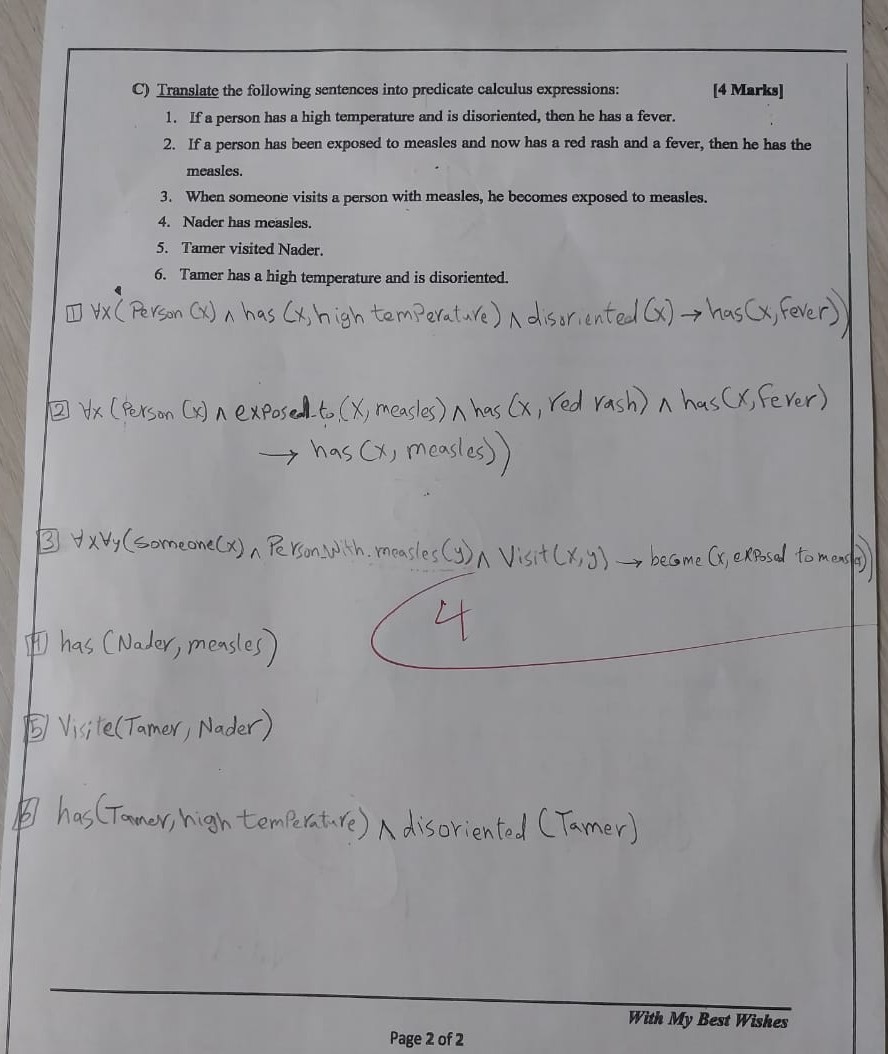 C) Translate the following sentences into predicate calculus expressions: [4 Marks]
1. If a person has a high temperature and is disoriented, then he has a fever.
2. If a person has been exposed to measles and now has a red rash and a fever, then he has the
measles.
3. When someone visits a person with measles, he becomes exposed to measles.
4. Nader has measles.
5. Tamer visited Nader.
6. Tamer has a high temperature and is disoriented.
1 ∀x(Person (x) ∧ has (x, high temperature) ∧ disoriented (x) → has(x, fever))
2 ∀x (Person (x) ∧ exposed-to (x, measles) ∧ has (x, red rash) ∧ has(x, fever)
→ has (x, measles))
3 ∀x∀y(someone(x) ∧ Person_with.measles(y) ∧ Visit(x,y) → become (x, exposed to measles))
4
4 has (Nader, measles)
5 Visite(Tamer, Nader)
6 has(Tamer, high temperature) ∧ disoriented (Tamer)
With My Best Wishes
Page 2 of 2